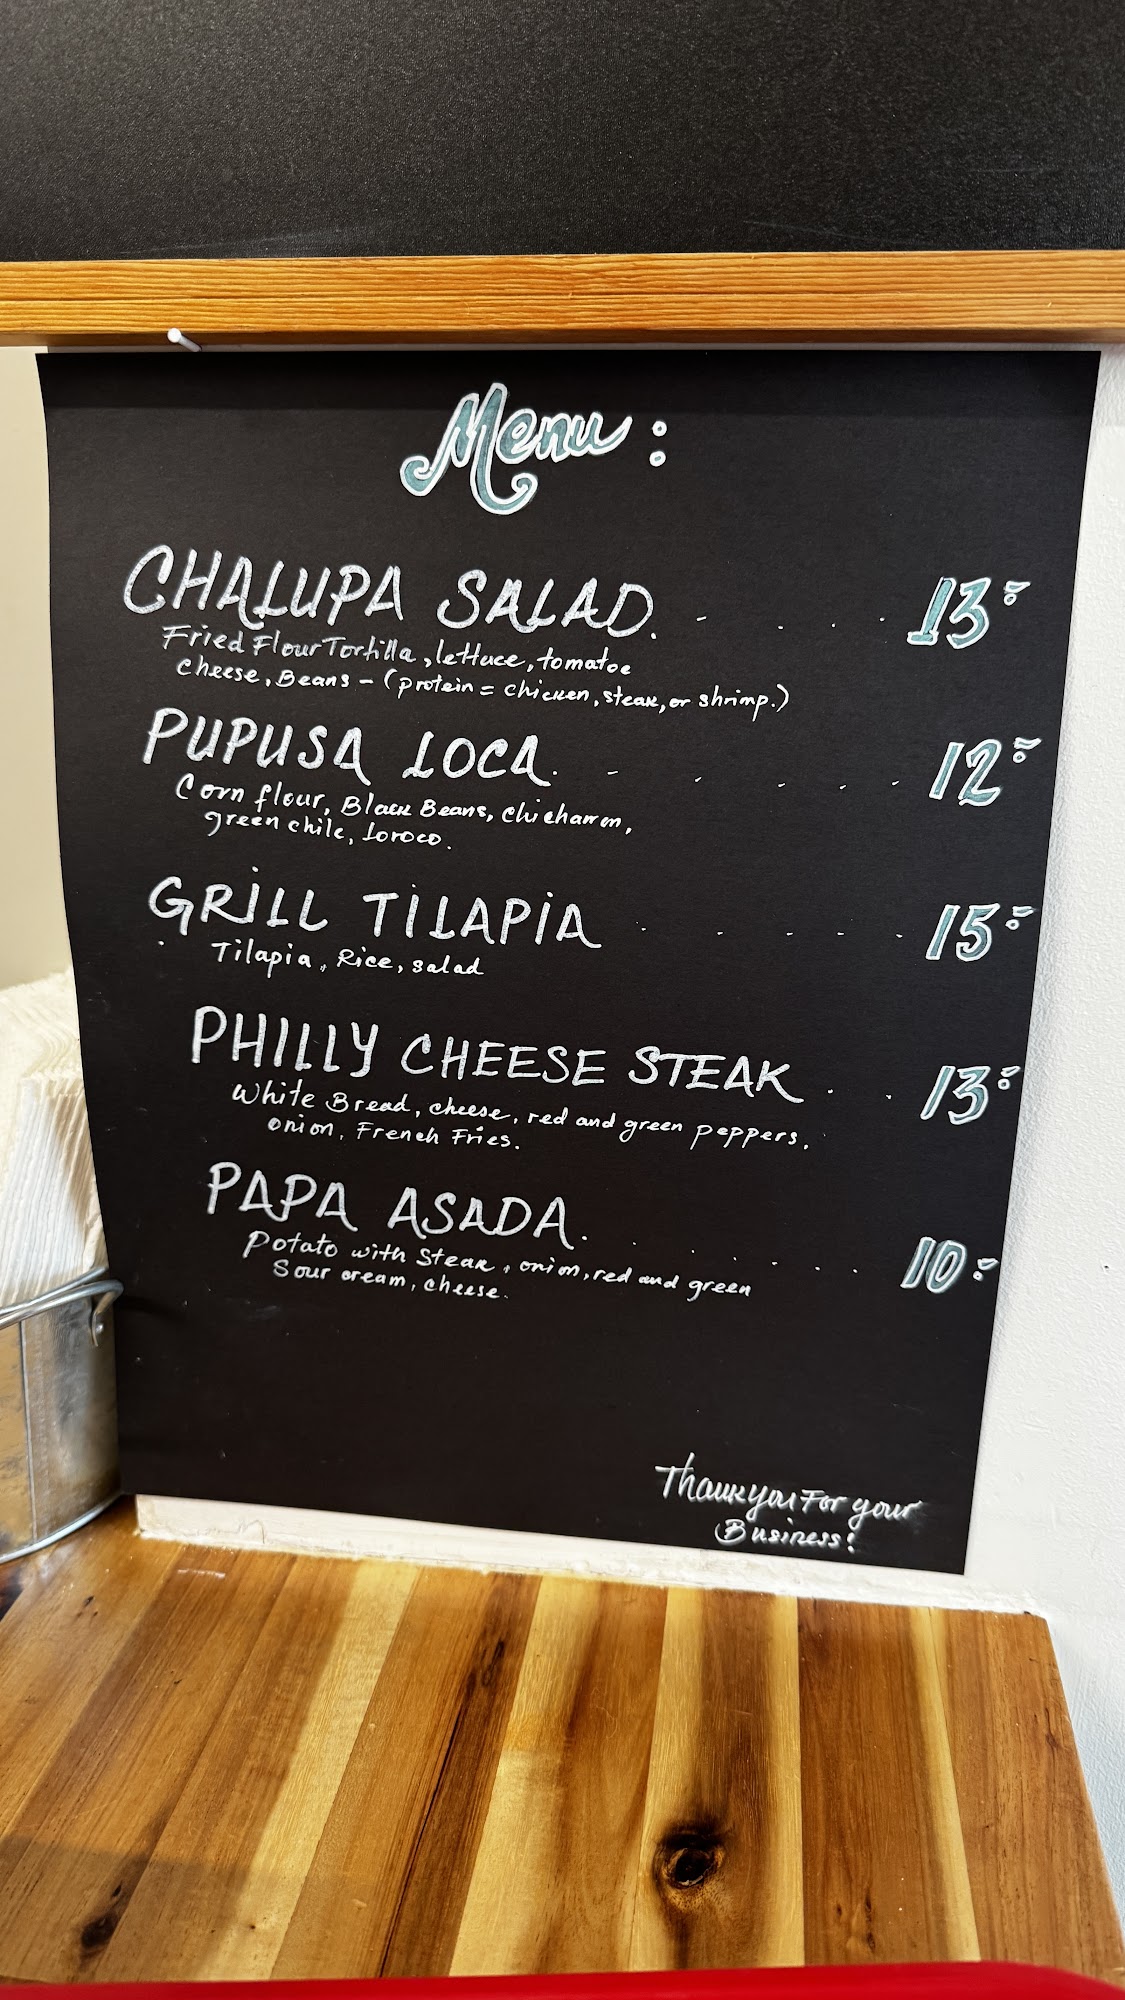 Menu:
CHALUPA SALAD. - . . . . 13
Fried Flour Tortilla, lettuce, tomatoe
cheese, Beans - (protein = chicken, steak, or shrimp.)
PUPUSA LOCA. - . . . . 12
Corn flour, Black Beans, chicharron,
green chile, Loroco.
GRILL TILAPIA . . . . . 15
Tilapia, Rice, salad
PHILLY CHEESE STEAK . . . 13
White Bread, cheese, red and green peppers,
onion, French Fries.
PAPA ASADA. . . . . . . 10
Potato with Steak, onion, red and green
Sour cream, cheese.
Thank you For your
Business!